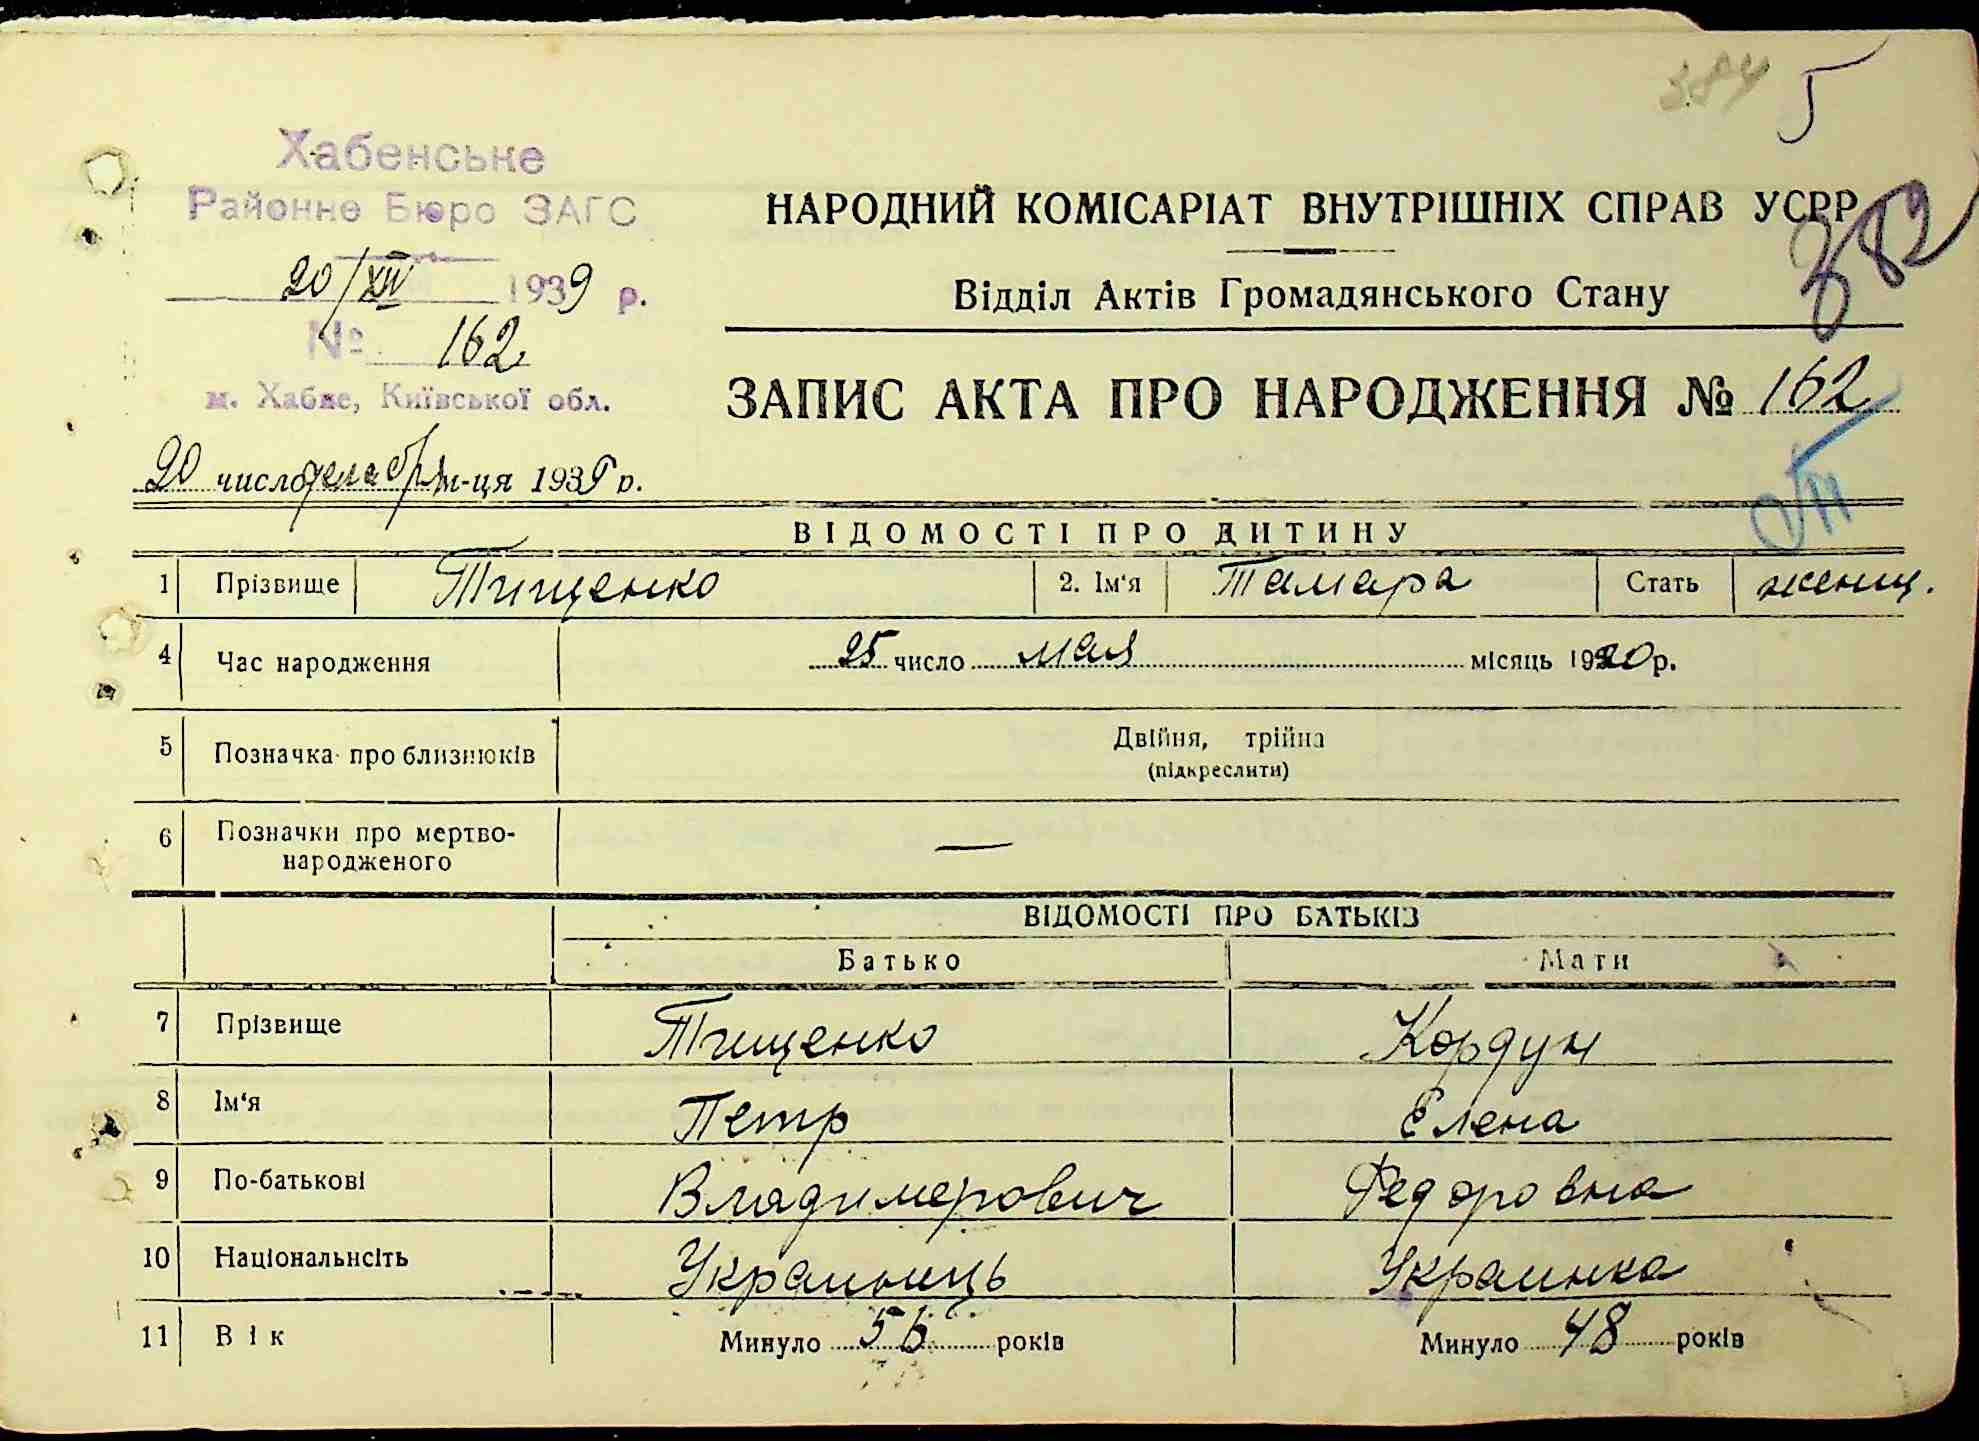 384 5
Хабенське
Районне Бюро ЗАГС
20/XII 1939 р.
№ 162
м. Хабне, Київської обл.
20 число декабря м-ця 1939 р.
НАРОДНИЙ КОМІСАРІАТ ВНУТРІШНІХ СПРАВ УСРР
382
Відділ Актів Громадянського Стану
ЗАПИС АКТА ПРО НАРОДЖЕННЯ № 162
ВІДОМОСТІ ПРО ДИТИНУ
1 Прізвище Тищенко 2. Ім'я Тамара Стать женщ.
4 Час народження 25 число мая місяць 1920 р.
5 Позначка про близнюків Двійня, трійна
(підкреслити)
6 Позначки про мертво-
народженого —
ВІДОМОСТІ ПРО БАТЬКІВ
Батько Мати
7 Прізвище Тищенко Кордун
8 Ім'я Петр Елена
9 По-батькові Владимерович Федоровна
10 Національнсіть Украинець Украинка
11 Вік Минуло 56 років Минуло 48 років